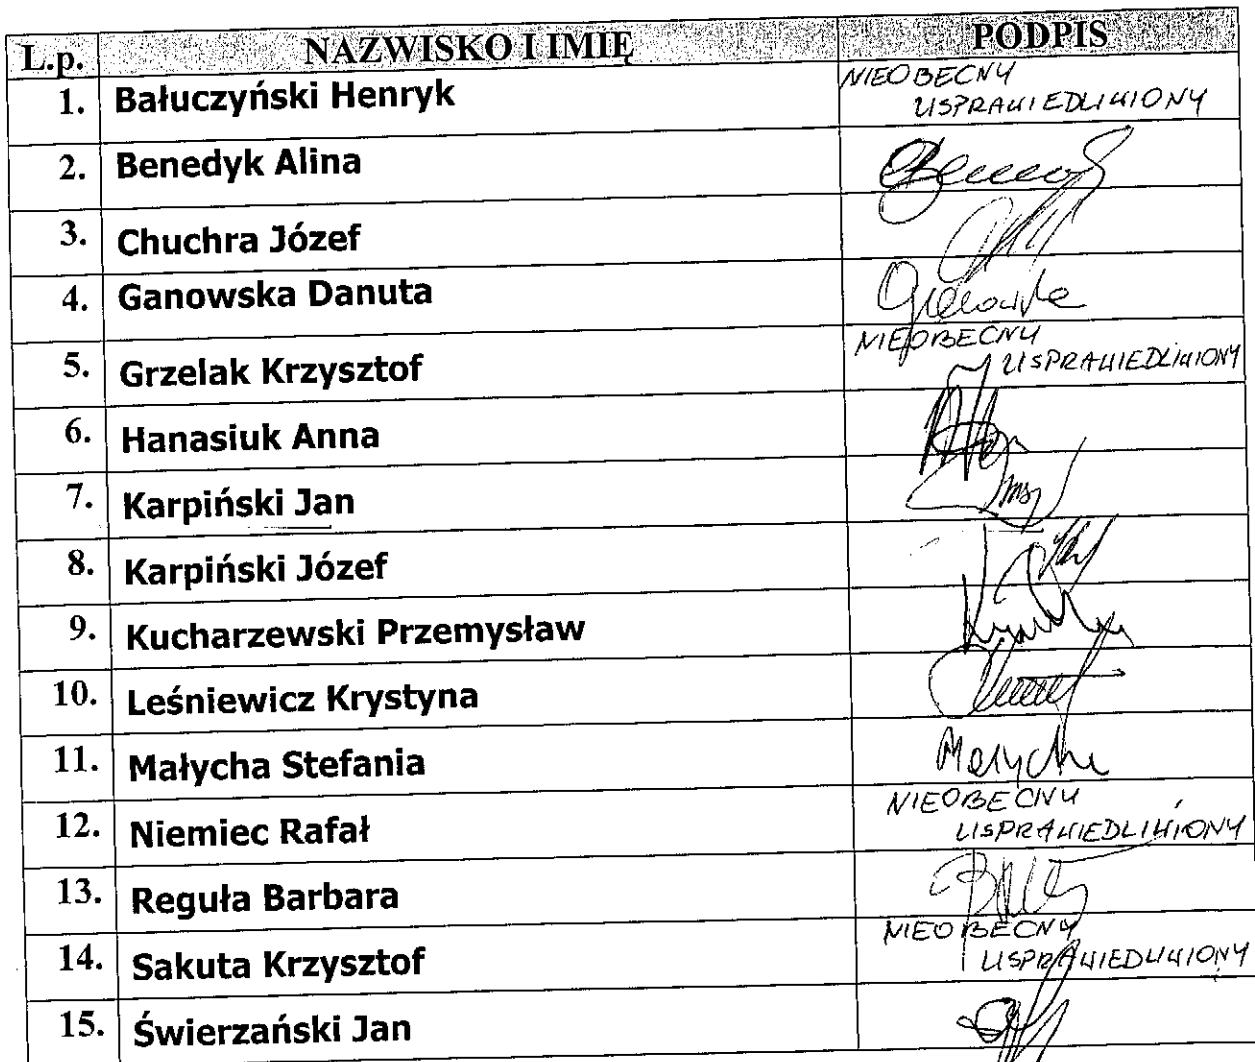 L.p. NAZWISKO I IMIĘ PODPIS
1. Bałuczyński Henryk NIEOBECNY
USPRAWIEDLIWIONY
2. Benedyk Alina
3. Chuchra Józef
4. Ganowska Danuta
5. Grzelak Krzysztof NIEOBECNY
USPRAWIEDLIWIONY
6. Hanasiuk Anna
7. Karpiński Jan
8. Karpiński Józef
9. Kucharzewski Przemysław
10. Leśniewicz Krystyna
11. Małycha Stefania Małycha
12. Niemiec Rafał NIEOBECNY
USPRAWIEDLIWIONY
13. Reguła Barbara
14. Sakuta Krzysztof NIEOBECNY
USPRAWIEDLIWIONY
15. Świerzański Jan